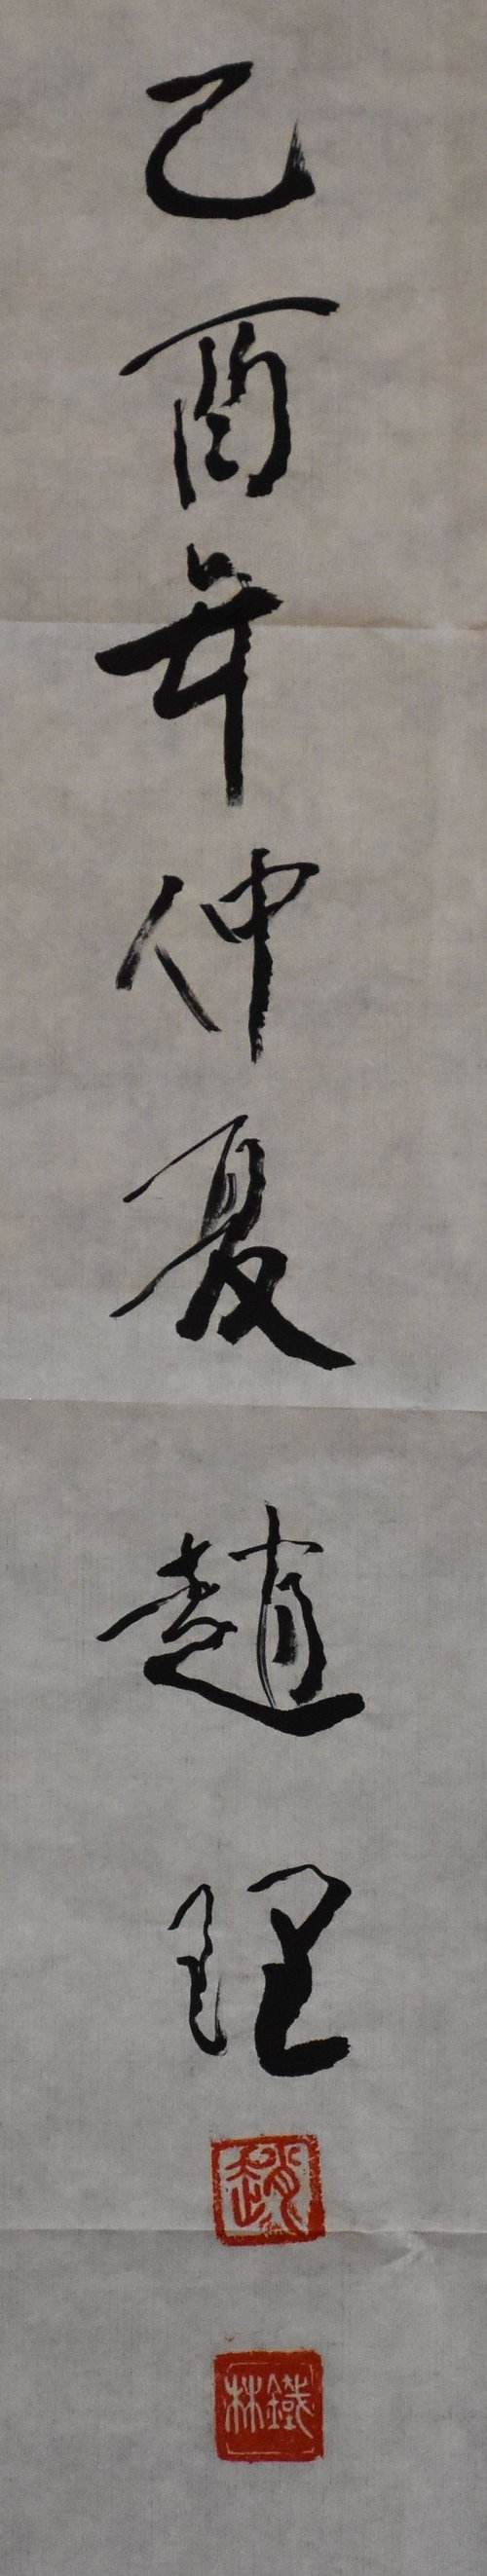 乙酉年仲夏 趙理
趙
鐵林